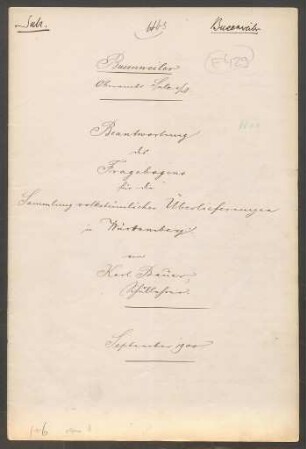 Sulz.
6463
Busenweiler
F 429
Busenweiler
Oberamts Sulz a/N
Beantwortung
des
Fragebogens
für die
Sammlung volkstümlicher Überlieferungen
in Württemberg
von
Karl Bauer,
Schullehrer.
September 1900